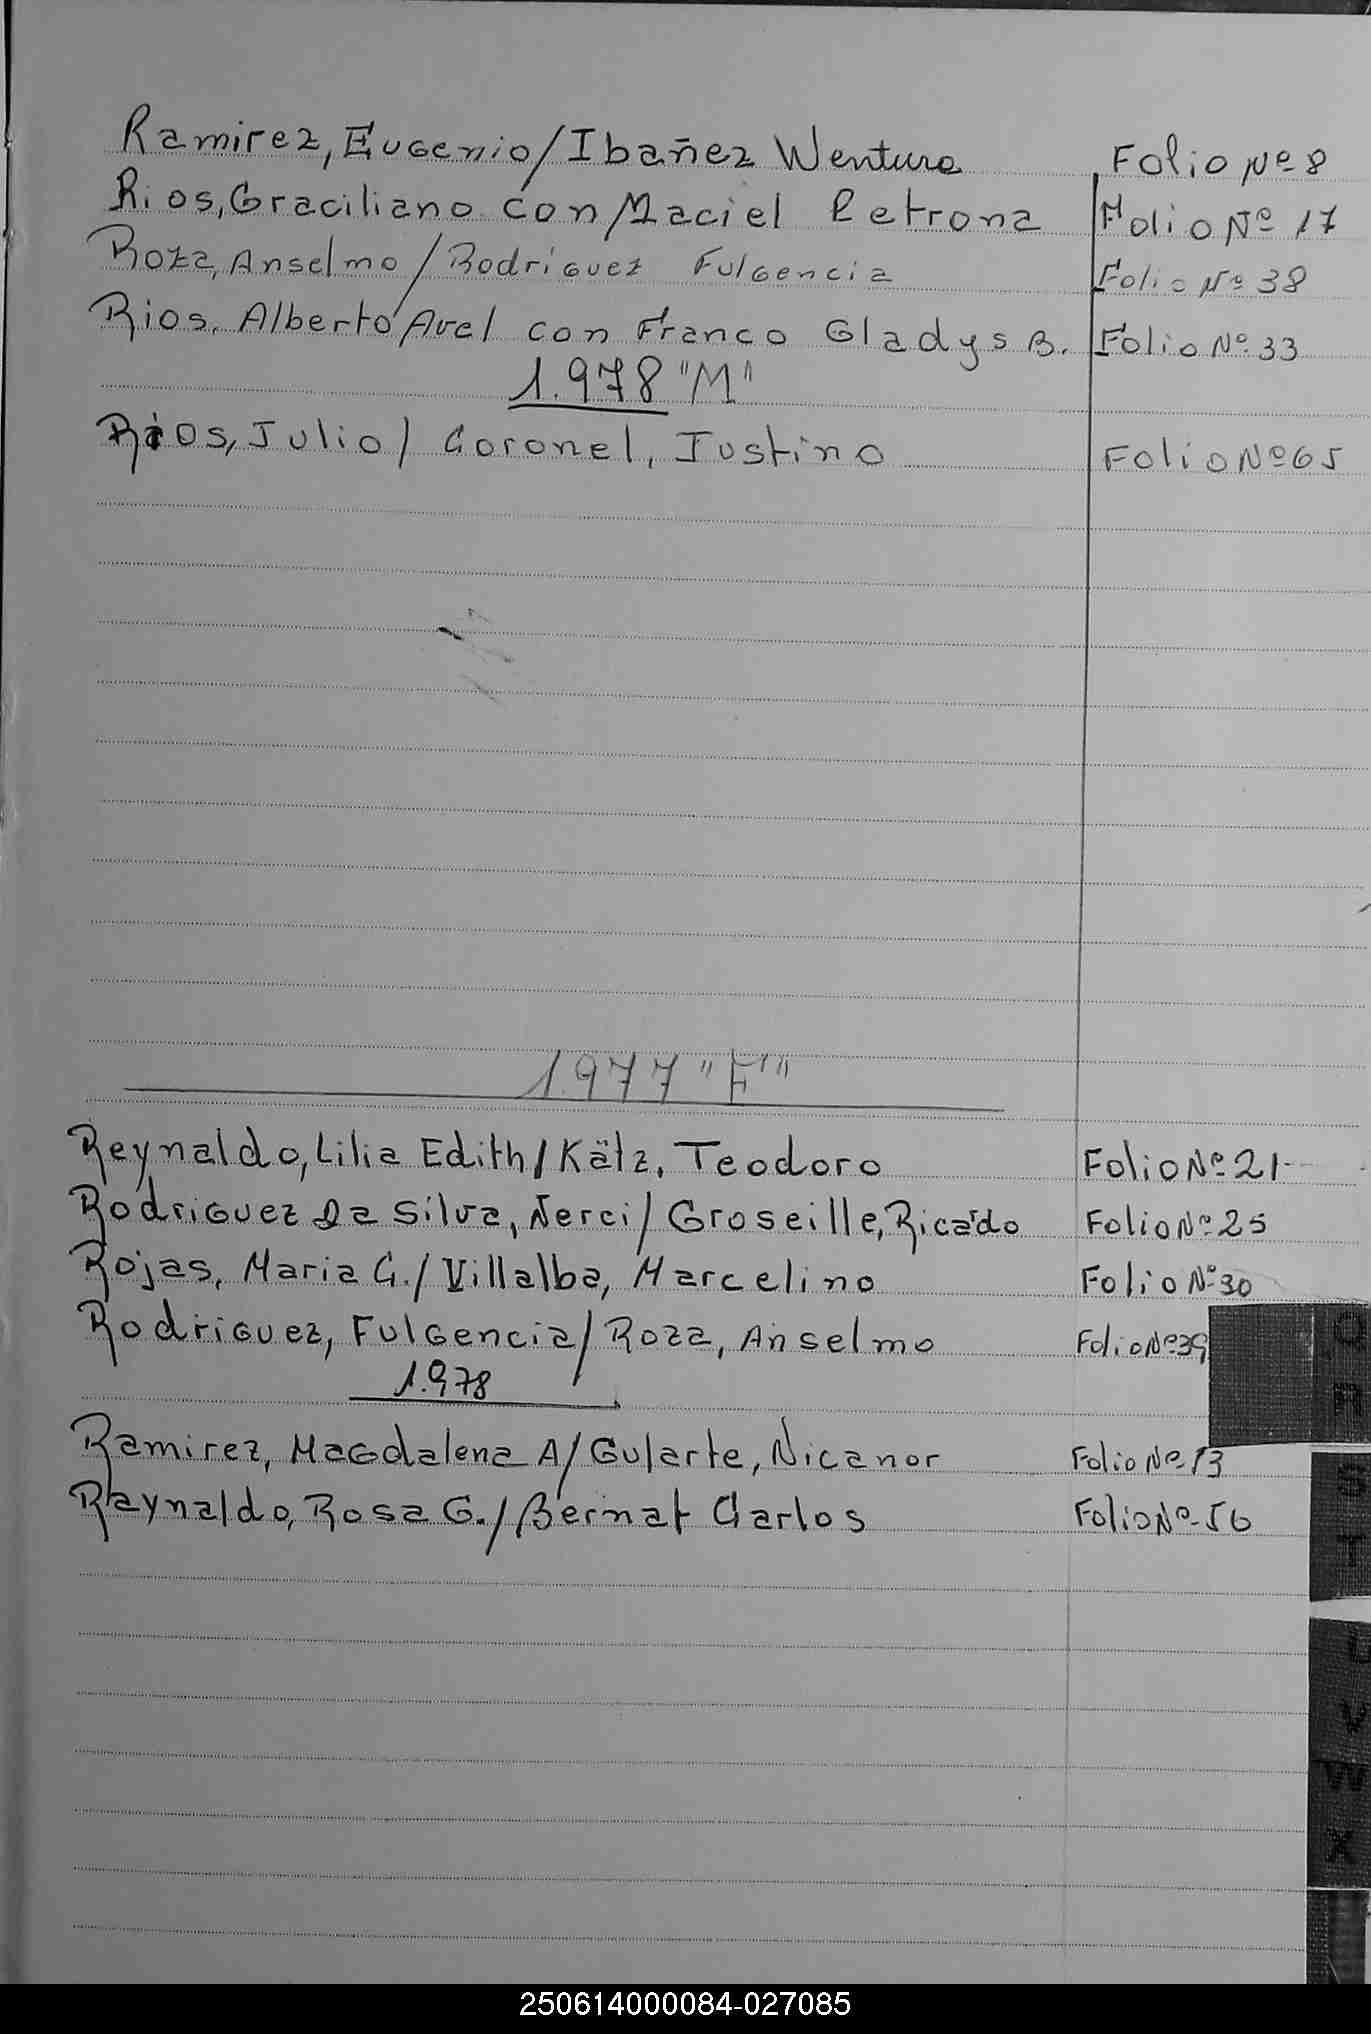 Ramirez, Eugenio/Ibañez Wentura Folio Nº 8
Rios, Graciliano con Maciel Petrona Folio Nº 17
Roza, Anselmo/Rodriguez Fulgencia Folio Nº 38
Rios, Alberto Avel con Franco Gladys B. Folio Nº 33
1.978 "M"
Rios, Julio/ Coronel, Justina Folio Nº 65
1.977 "F"
Reynaldo, Lilia Edith/Kätz, Teodoro Folio Nº 21
Rodriguez Da Silva, Nerci/ Groseille, Ricardo Folio Nº 25
Rojas, Maria G./Villalba, Marcelino Folio Nº 30
Rodriguez, Fulgencia/Roza, Anselmo Folio Nº 39
1.978
Ramirez, Magdalena A/Gularte, Nicanor Folio Nº 13
Raynaldo, Rosa G./Bernat Carlos Folio Nº 56
Q
R
S
T
U
V
W
X
250614000084-027085